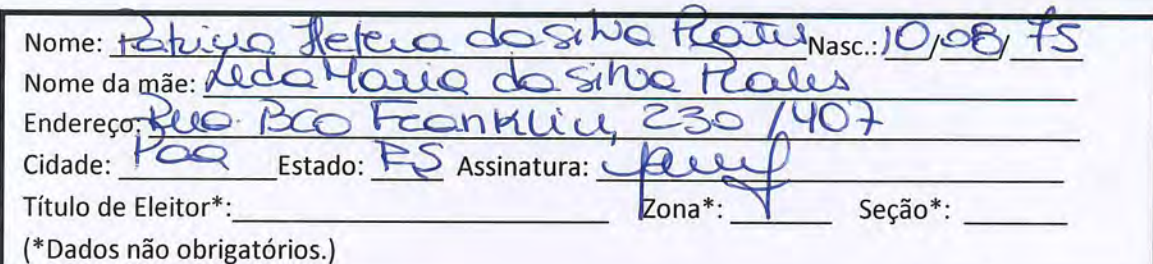 Nome: Patriya Helena da Silva Nasc.: 10/08/75
Nome da mãe: Leda Maria da Silva
Endereço: Rua BCO Franklin, 230 /407
Cidade: POA Estado: RS Assinatura:
Título de Eleitor*: Zona*: Seção*:
(*Dados não obrigatórios.)